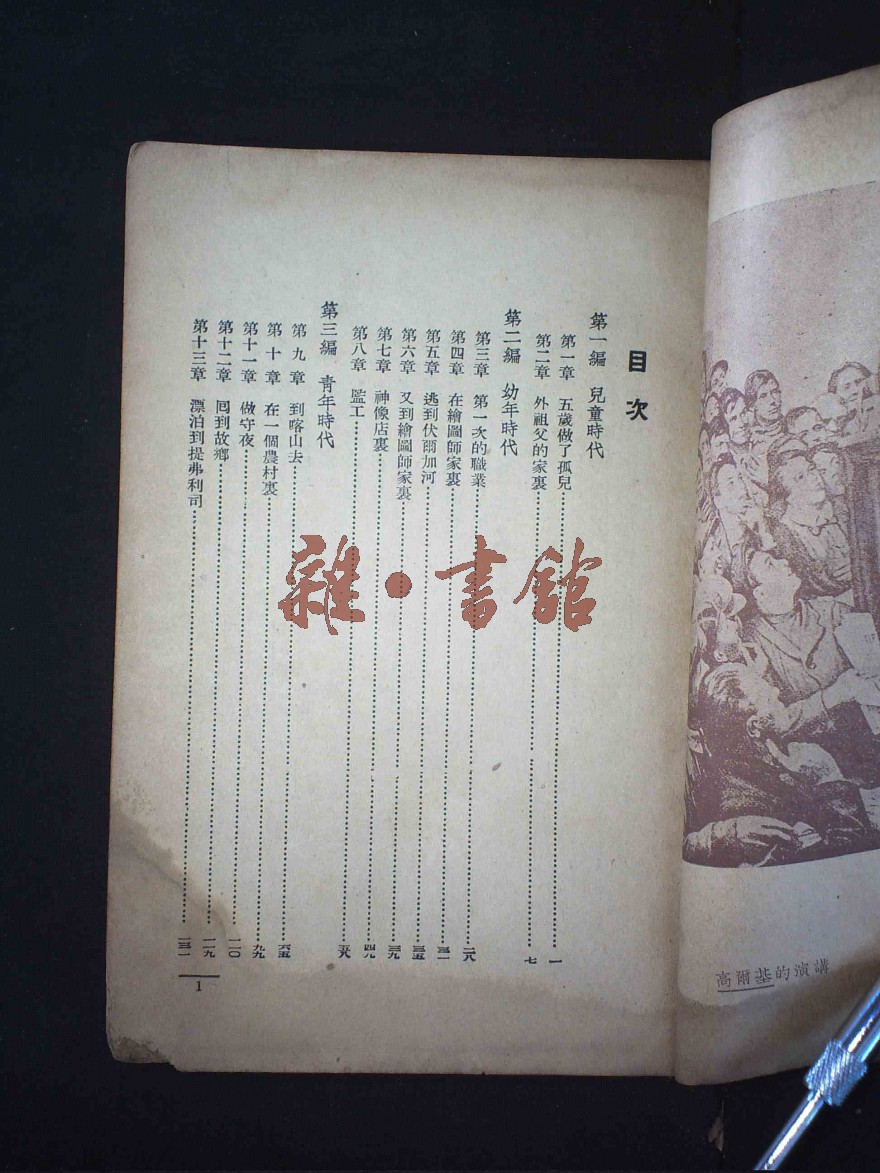 目次
第一編 兒童時代
第一章 五歲做了孤兒 一
第二章 外祖父的家裏 七
第二編 幼年時代
第三章 第一次的職業 二八
第四章 在繪圖師家裏 三一
第五章 逃到伏爾加河 三五
第六章 又到繪圖師家裏 三九
第七章 神像店裏 四九
第八章 監工 五八
第三編 青年時代
第九章 到喀山去 六五
第十章 在一個農村裏 九九
第十一章 做守夜 一一〇
第十二章 囘到故鄉 一一九
第十三章 漂泊到提弗利司 一三一
1
雜·書館
高爾基的演講